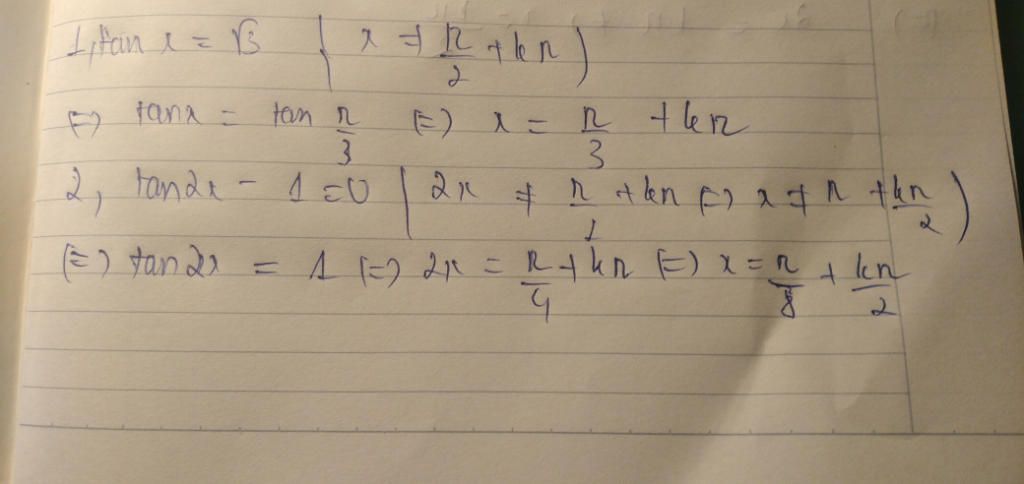 1, tan x = √3 ( x ≠ π/2 + kπ )
⇔ tanx = tan π/3 ⇔ x = π/3 + kπ
2, tan2x - 1 = 0 ( 2x ≠ π/1 + kπ ⇔ x ≠ π + kπ/2 )
⇔ tan2x = 1 ⇔ 2x = π/4 + kπ ⇔ x = π/8 + kπ/2